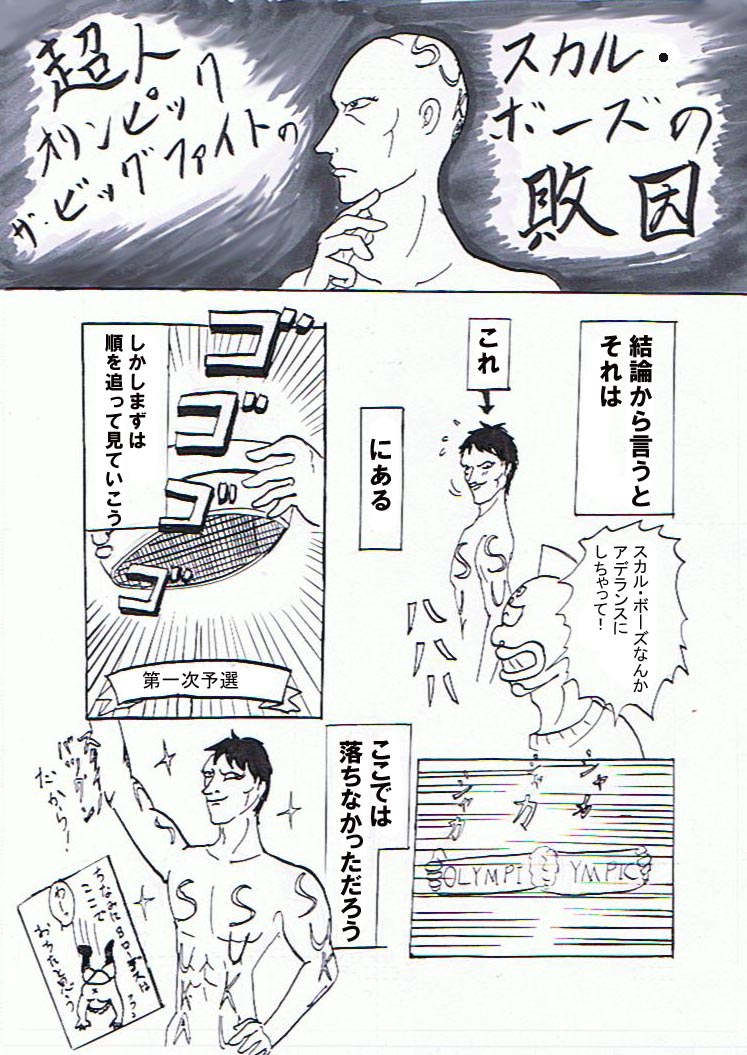 超人
オリンピック
ザ・ビッグファイトの
スカル・
ボーズの
敗因
結論から言うと
それは
これ
にある
スカル・ボーズなんか
アデランスに
しちゃって！
ゴゴゴゴ
しかしまずは
順を追って見ていこう
第一次予選
シャカ
シャカ
シャカ
OLYMPI
YMPIC
ここでは
落ちなかっただろう
だから！
ちなみに
ここで
おちたと思う
SU
SU
S
SU
SUK
SUKA
SUKL